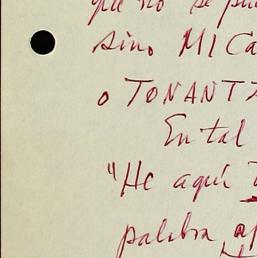 que no se pue
sino MI Ca
o TONANTZ
En tal
"He aquí
palabra, ap